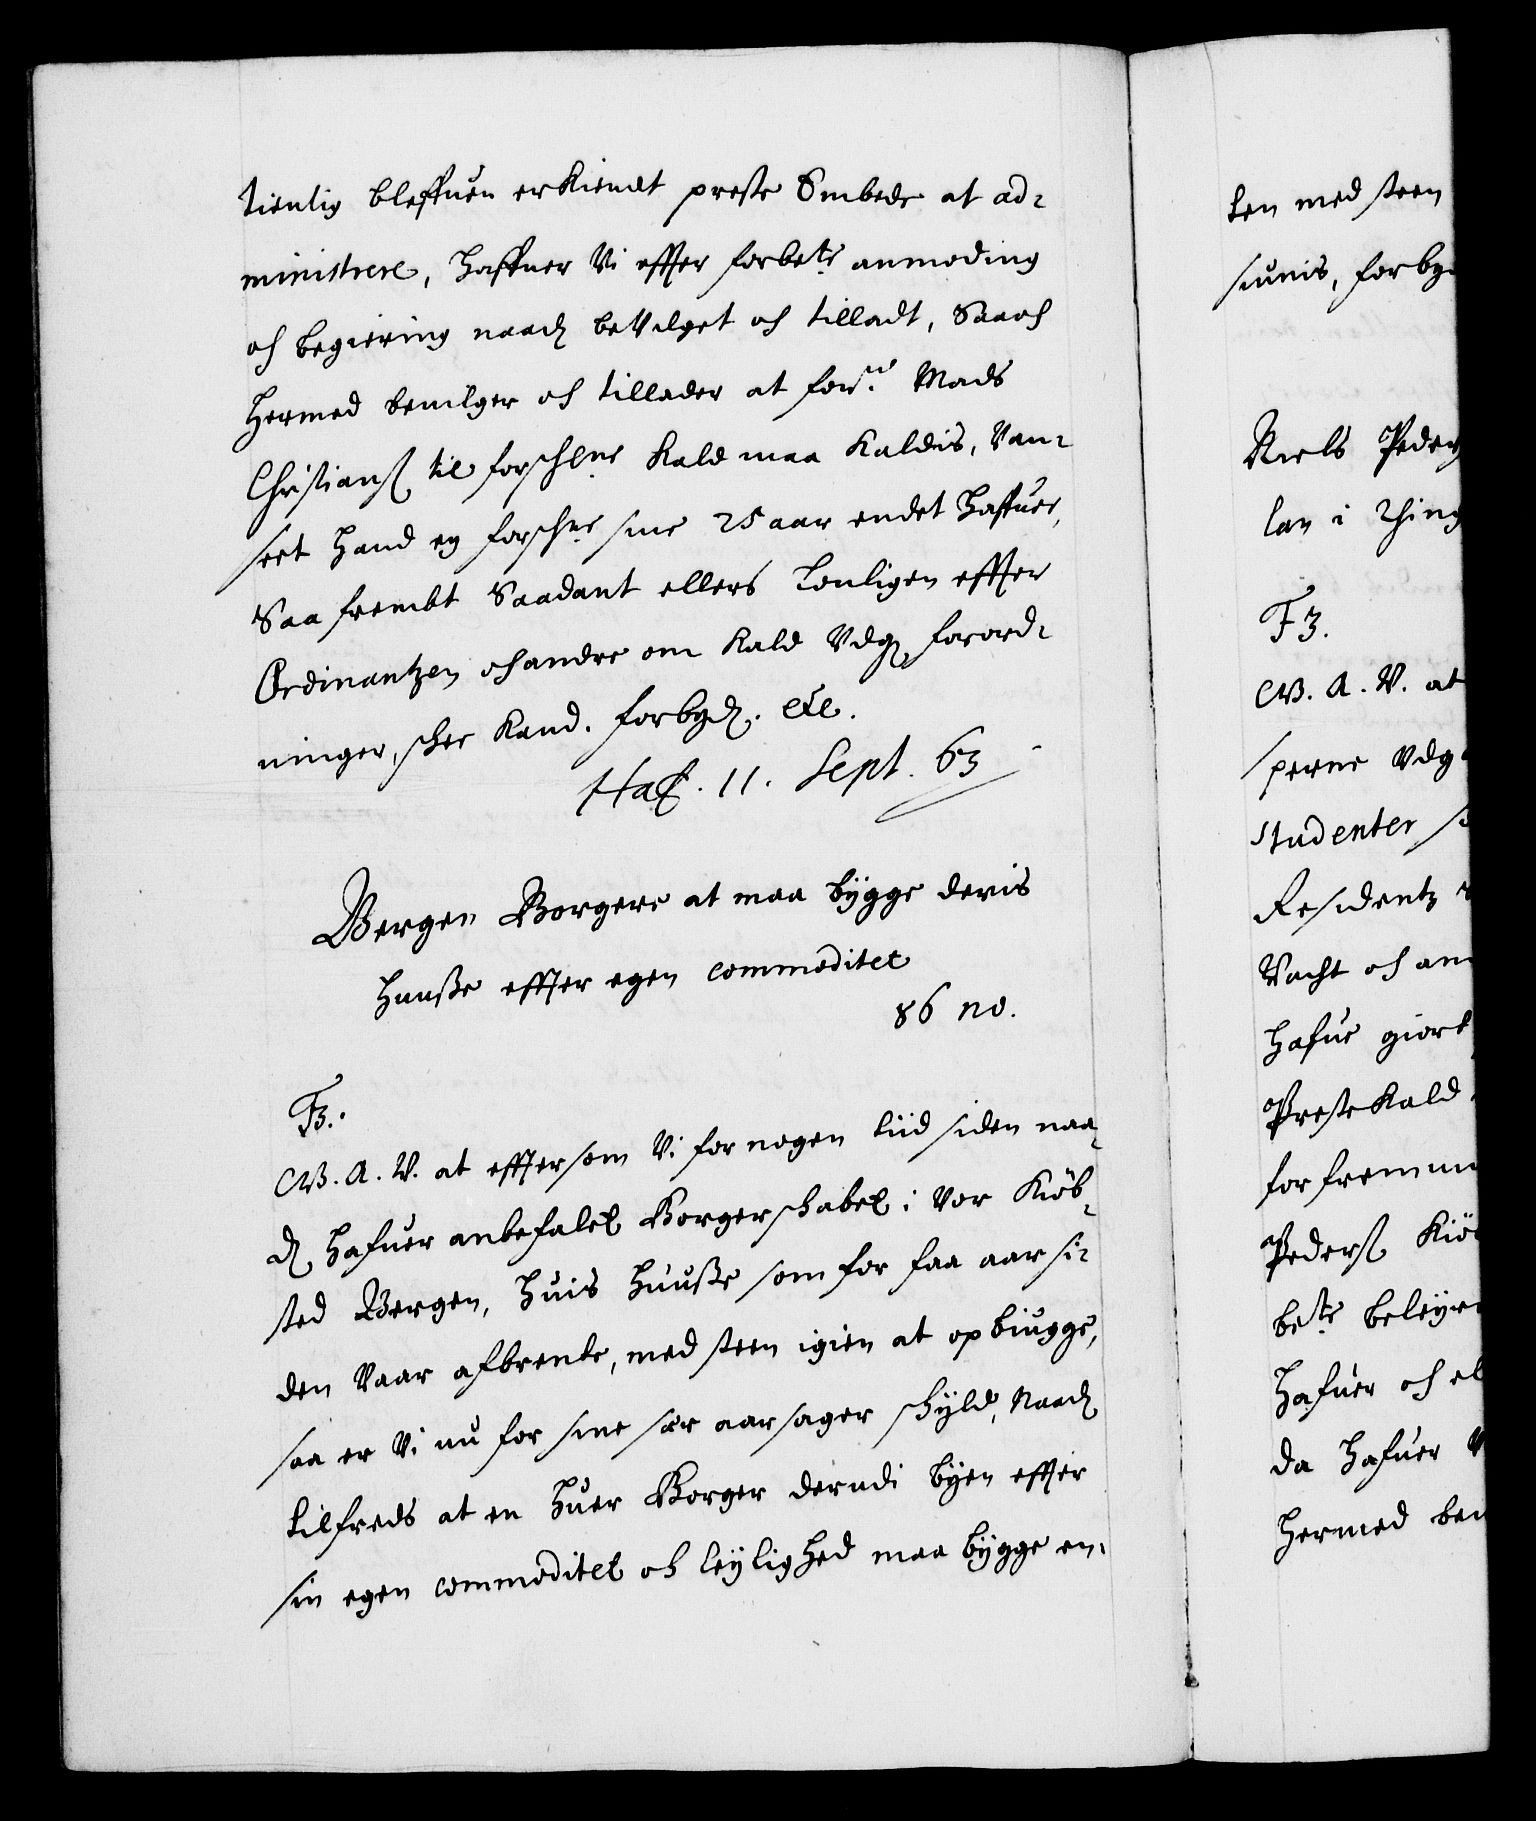 tienlig bleffuen erkiendt preste Embede at ad-
ministrere, Haffuer Vi effter forbete anmoding
och begiering naadh beVilget och tilladt, Saa och
Hermed beuilger och tillader at forne Mads
Christiansh til forschrne Kald maa Kaldis, Van-
seet Hand ey forschne sine 25 aar endet Haffuer,
Saa frembt Saadant ellers Louligen effter
Ordinantzen och andre om Kald Vdg forord-
ninger, schee Kand. forbydh. etc.
Haf. 11. Sept. 63
Bergen Borgere at maa bygge deris
Huusse effter egen commoditet
86 no.
F3.
G.A.V. at effter som Vi for nogen tiid siden naa-
dh Hafuer anbefalet Borgerskabet i Vor Kiöb-
sted Bergen, Huis Huusse som for faa aar si-
den Vaar afbrente, med steen igien at opbiugge,
saa er Vi nu for sine ser aarsager skyld, Naadh
tilfreds at en Huer Borger derudi byen effter
sin egen commoditet och leylighed maa bygge en-
ten med steen
siunis, forby
Niels Peder
lav i Thing
F3.
G.A.V. at
perne Vdg
Studenter
Residentz
Vacht och an
Hafue giort
Prestekald
for fremm
Pedersh Kiö
bete beleyr
Hafuer och el
da Hafuer V
Hermed be